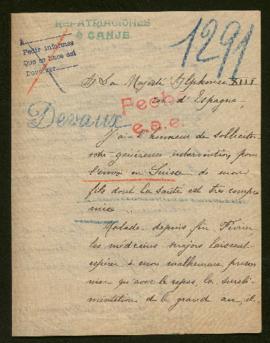 REPATRIACIONES
ó CANJE
1291
Pedir informes
Que se hace del
A Sa Majesté Alphonse XIII
Roi d'Espagne,
Devaux
Fech
e.a.e.
J'ai l'honneur de solliciter
votre généreuse intervention pour
l'envoi en Suisse de mon
fils dont la santé est très compro
mise.
Malade depuis fin Février
les médecins majors laissent
espérer à mon malheureux prison
nier qu'avec le repos, la surali-
mentation et le grand air, il